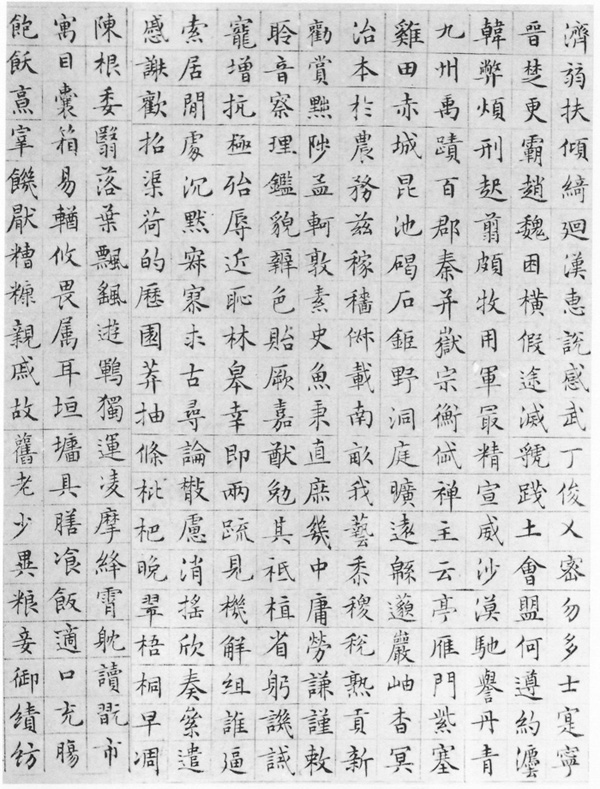 濟弱扶傾綺迴漢惠說感武丁俊乂密勿多士寔寧
晉楚更霸趙魏困橫假途滅虢踐土會盟何遵約灋
韓弊煩刑起翦頗牧用軍冣精宣威沙漠馳譽丹青
九州禹蹟百郡秦并嶽宗衡岱禅主云亭雁門紫塞
雞田赤城昆池碣石鉅野洞庭曠遠緜邈巖岫杳冥
治本於農務茲稼穡俶載南畝我藝黍稷稅熟貢新
勸賞黜陟孟軻敦素史魚秉直庶幾中庸勞謙謹敕
聆音察理鑑貌辯色貽厥嘉猷勉其祗植省躬譏誡
寵增抗極殆辱近恥林皋幸即兩疏見機解組誰逼
索居閒處沉默寂寥求古尋論散慮消搖欣奏累遣
慼謝歡招渠荷的歷園莽抽條枇杷晚翠梧桐早凋
陳根委翳落葉飄颻遊鵾獨運凌摩絳霄耽讀翫市
寓目囊箱易輶攸畏属耳垣墻具膳飡飯適口充腸
飽飫烹宰饑厭糟糠親戚故舊老少異粮妾御績紡